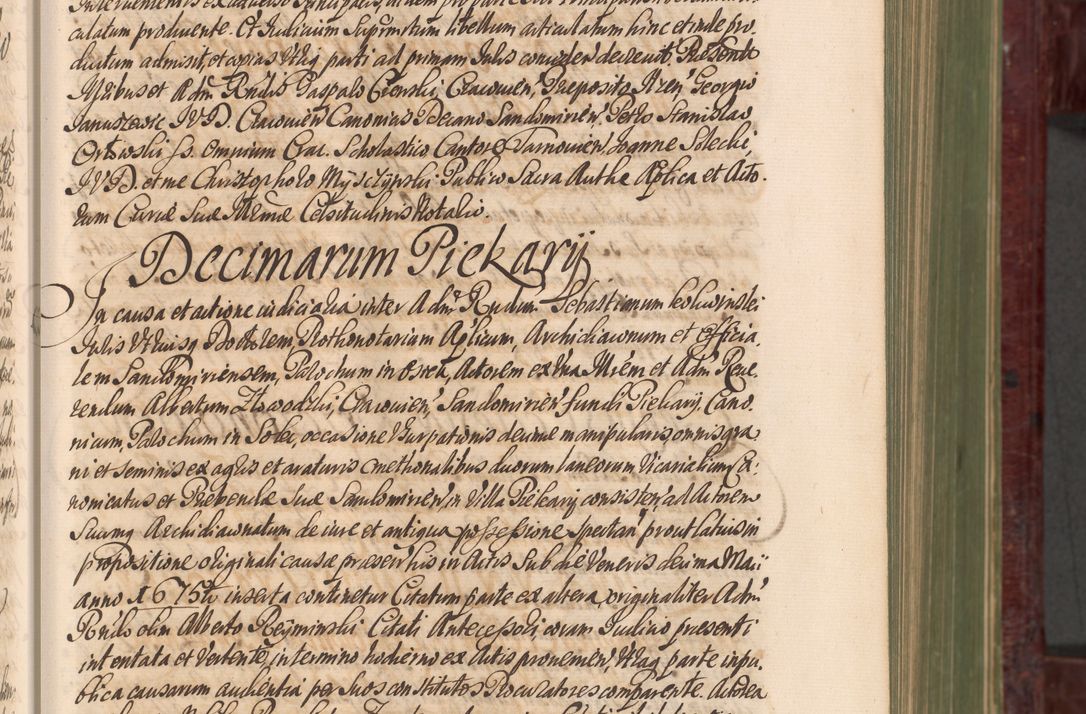 culatum producente. Et Iudicium Supremum libellum articulatum hinc et inde pro.
ductum admisit, et copias Utriq parti ad primam Iuris concedend decrevit. Presente
Illribus et Adm Rndis Paspalo Cienski, Cracovien, Preposito Azen Georgio
Januszewic JVD. Cracovien Canonicis Decano Sandomirien. Petro Stanislao
Orłowski ss. Omnium Crac. Scholastico Cantore Tarnovien, Joanne Solecki,
JVD. et me Christophoro Mysczynski Publico Sacra Authe Aplica et Acto.
rum Curie Sue Illrme Celsitudinis Notario.
Decimarum Piekarÿ
In causa et actione iudiciaria inter Adm Rndum Sebastianum
Iuris Utriusq Doctorem, Prothonotarium Aplicum, Archidiaconum et Officia.
lem Sandomiriensem, Parochum in Osiek, Actorem ex Una Illrem et Adm Reve.
rendum Albertum Cracovien, Sandomirien fundi Piekary Cano.
nicum, Parochum in Solec, occasione Usurpationis decime manipularis, omnis gra
ni et seminis ex agris et araturis cmethonalibus duorum laneorum Vicarialium Ca.
nonicatus et Prebende Sue Sandomirien, in Villa Piekary consisten, ad Actorem
Suumq Archidiaconatum de iure et antiqua possessione spectan prout latius in
propositione originali cause presen his in Actis Sub die Veneris decima Maii
anno 1675to inserta continetur Citatum parte ex altera, originaliter Adm
Rndo olim Alberto Reyminski Citati Antecessori coram Iudicio presenti
intentata et Vertente, in termino hodierno ex Actis provenien, Utraq parte in pu.
blica causarum audientia per Suos constitutos Procuratores comparente. Actorea